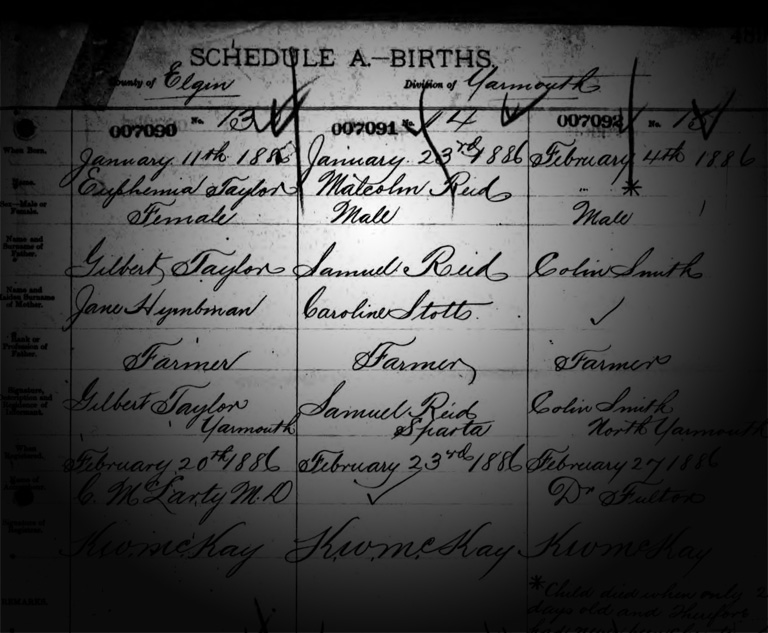 SCHEDULE A.—BIRTHS.
County of Elgin Division of Yarmouth
007090 No. 13 007091 No. 14 007092 No. 15
When Born. January 11th 1886 January 23rd 1886 February 4th 1886
Name. Euphemia Taylor Malcolm Reid " *
Sex—Male or Female. Female Male Male
Name and Surname of Father. Gilbert Taylor Samuel Reid Colin Smith
Name and Maiden Surname of Mother. Jane Caroline Stott ✓
Rank or Profession of Father. Farmer Farmer Farmer
Signature, Description and Residence of Informant. Gilbert Taylor Samuel Reid Colin Smith
Yarmouth Sparta North Yarmouth
When Registered. February 20th 1886 February 23rd 1886 February 27 1886
C. McLarty M.D ✓ Dr Fulton
Signature of Registrar. McKay McKay McKay
REMARKS. *Child died when only 2
days old and therefore